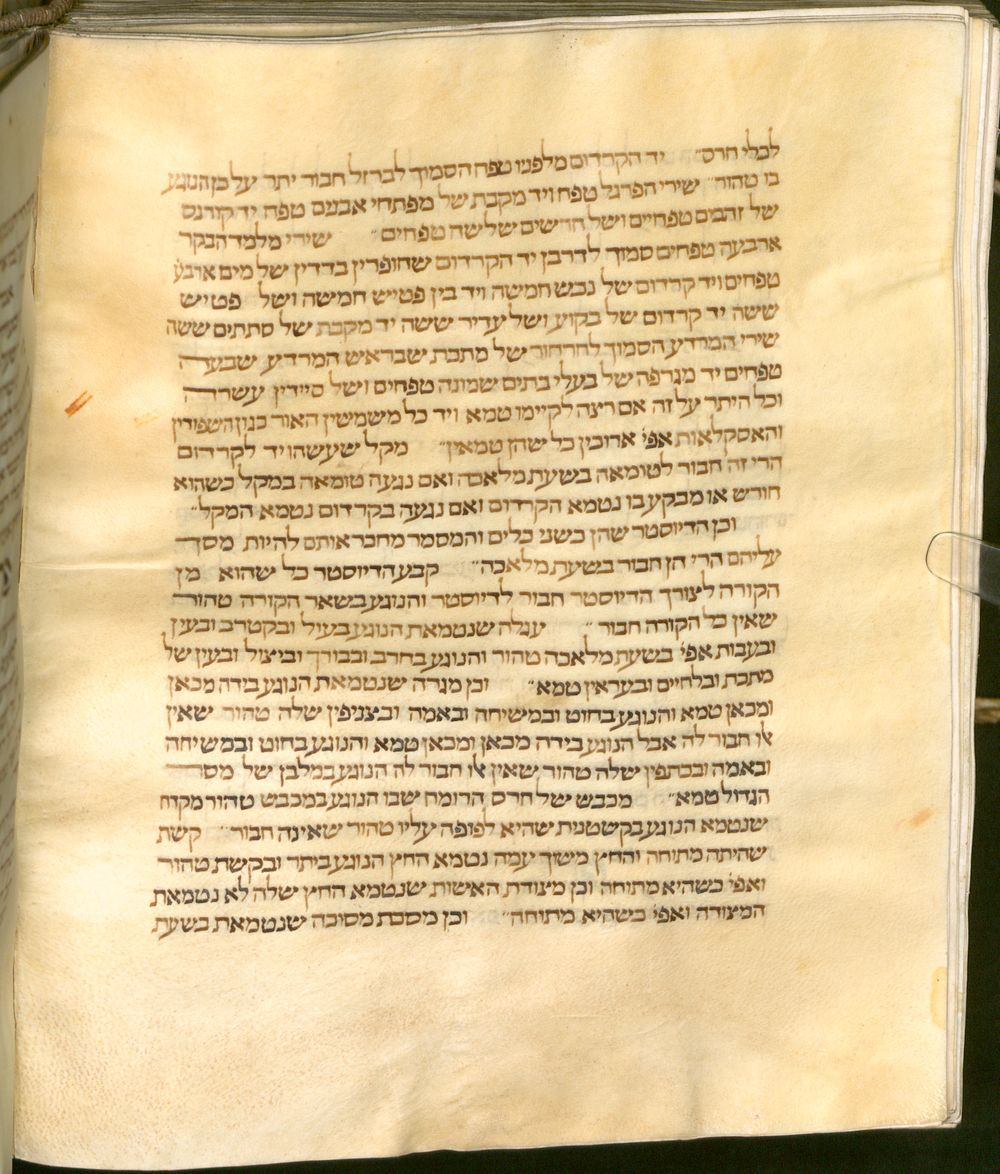 לכלי חרס״ יד הקרדום מלפניו טפח הסמוך לברזל חבור יתר על כן הנוגע
בו טהור״ שירי הפרגל טפח ויד מקבת של מפתחי אבנים טפח יד קורנס
של זהבים טפחיים ושל חרשים שלשה טפחים״ שירי מלמד הבקר
ארבעה טפחים סמוך לדרבן יד הקרדום שחופרין בדדין של מים ארבע
טפחים ויד קרדום של נכוש חמשה ויד בין פטיש חמשה ושל פטיש
ששה יד קרדום של בקוע ושל עדיר ששה יד מקבת של סתתים ששה
שירי המרדע הסמוך לחרחור של מתכת שבראש המרדע שבעה
טפחים יד מגרפה של בעלי בתים שמונה טפחים ושל סיידין עשרה
וכל היתר על זה אם רצה לקיימו טמא ויד כל משמשין האור כגון השפודין
והאסקלאות אפי׳ ארוכין כל שהן טמאין״ מקל שעשהו יד לקרדום
הרי זה חבור לטומאה בשעת מלאכה ואם נגעה טומאה במקל כשהוא
חורש או מבקע בו נטמא הקרדום ואם נגעה בקרדום נטמא המקל״
וכן הדיוסטר שהן כשני כלים והמסמר מחבר אותם להיות מסך
עליהם הרי הן חבור בשעת מלאכה״ קבע הדיוסטר כל שהוא מן
הקורה לצורך הדיוסטר חבור לדיוסטר והנוגע בשאר הקורה טהור
שאין כל הקורה חבור״ עגלה שנטמאת הנוגע בעול ובקטרב ובעין
ובעבות אפי׳ בשעת מלאכה טהור והנוגע בחרב ובבורך וביצול ובעין של
מתכת ובלחיים ובעראין טמא״ וכן מגרה שנטמאת הנוגע בידה מכאן
ומכאן טמא והנוגע בחוט ובמשיחה ובאמה ובצניפין שלה טהור שאין
אלו חבור לה אבל הנוגע בידה מכאן ומכאן טמא והנוגע בחוט ובמשיחה
ובאמה ובכתפין שלה טהור שאין אלו חבור לה הנוגע במלבן של מסר
הגדול טמא״ מכבש של חרס הרומח שבו הנוגע במכבש טהור מקדח
שנטמא הנוגע בקשטנית שהיא לפופה עליו טהור שאינה חבור״ קשת
שהיתה מתוחה והחץ משוך עמה נטמא החץ הנוגע ביתר ובקשת טהור
ואפי׳ כשהיא מתוחה וכן מצודת האשות שנטמא החץ שלה לא נטמאת
המצודה ואפי׳ כשהיא מתוחה״ וכן מסכת מסיכה שנטמאת בשעת